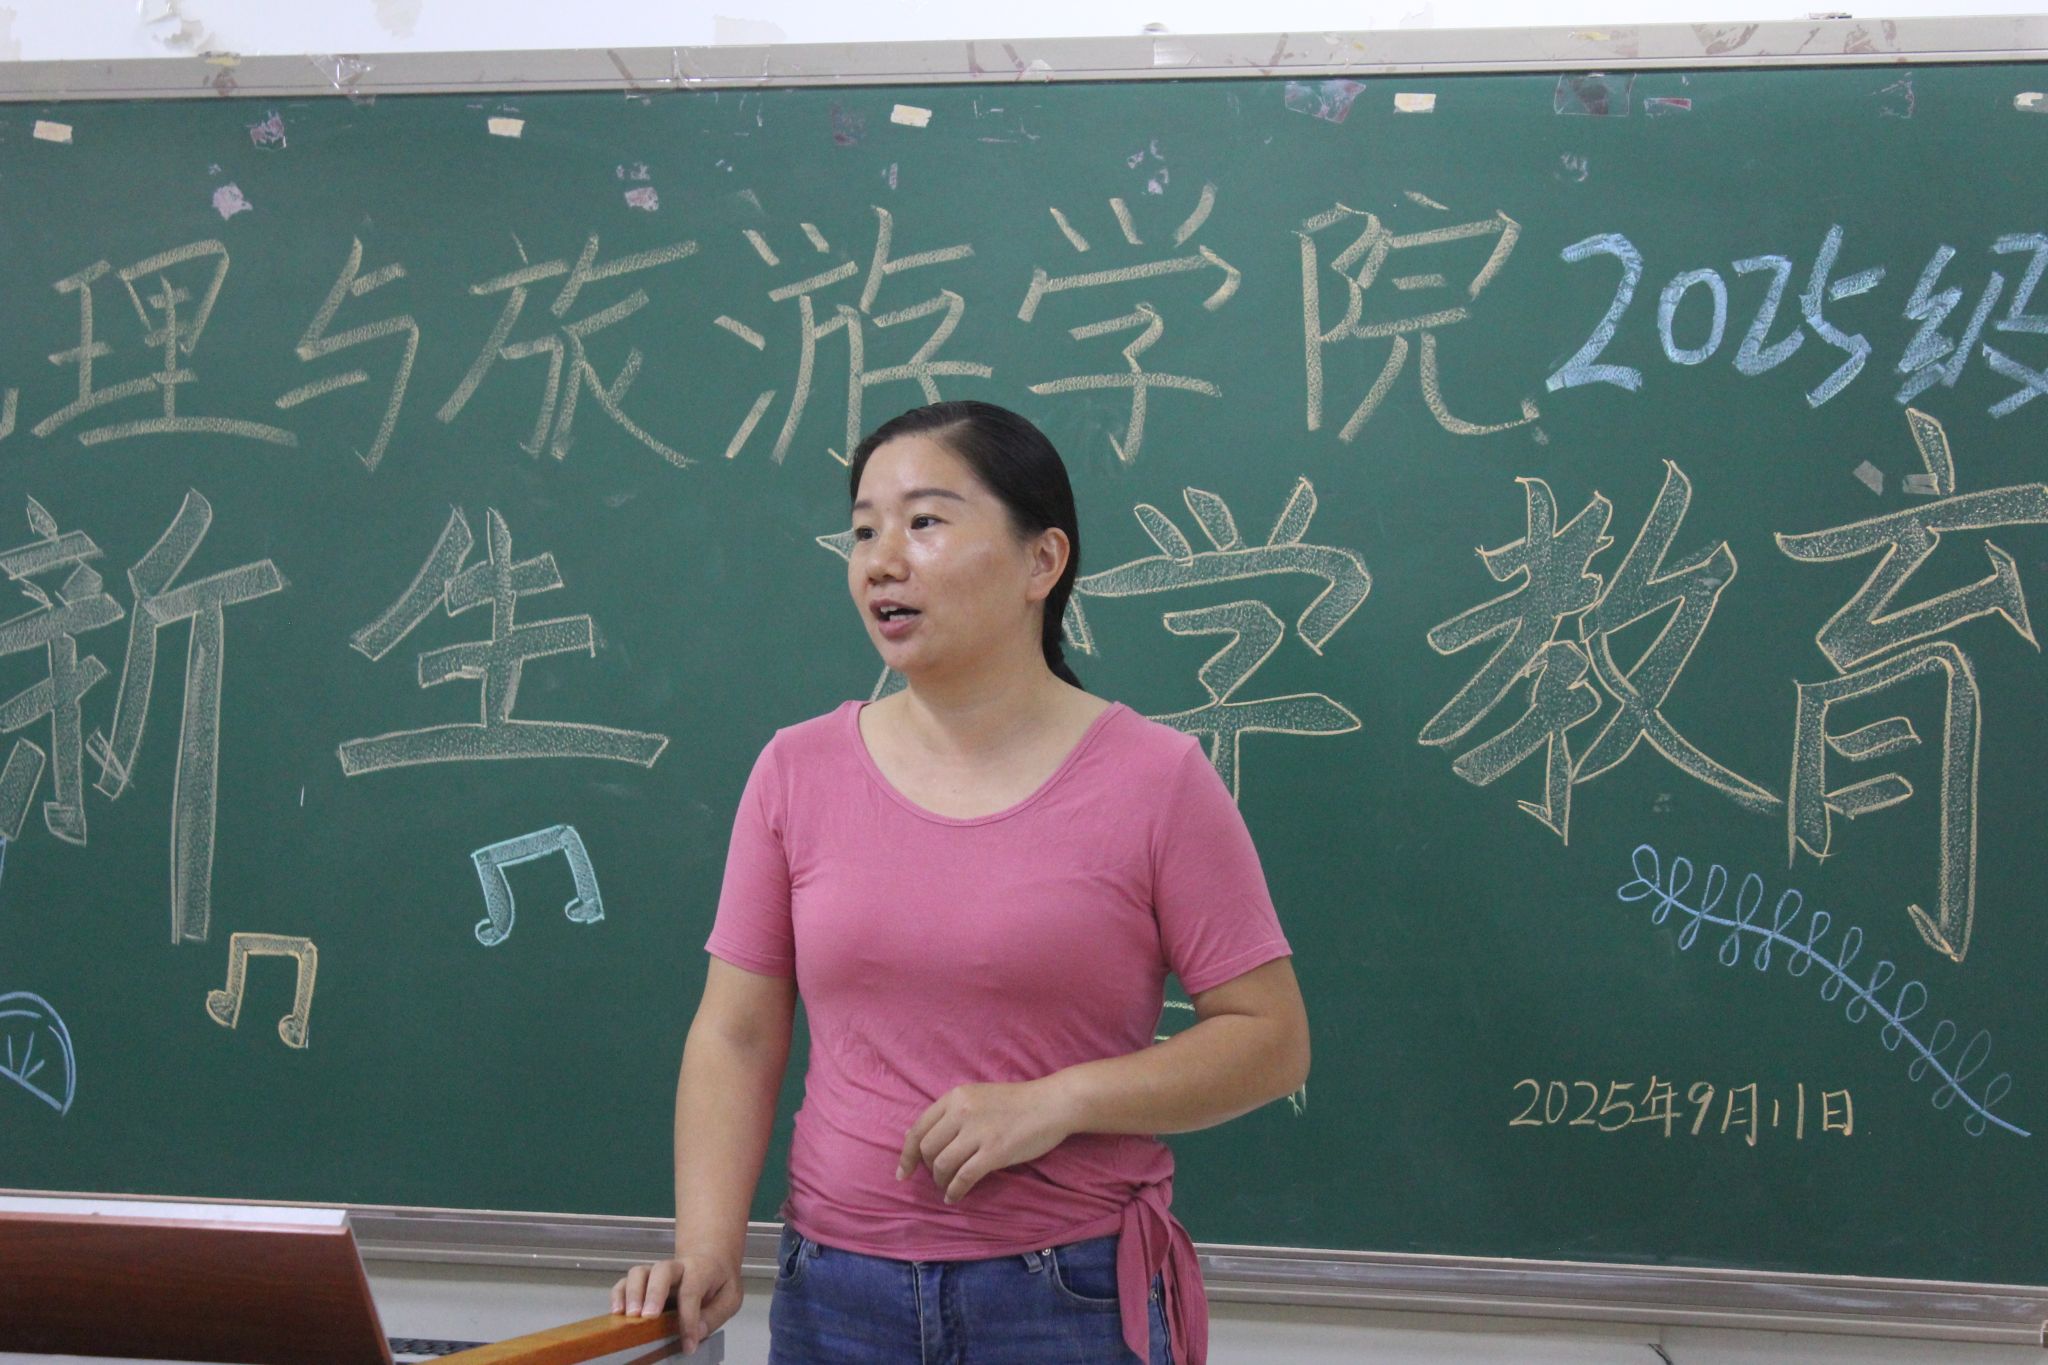 理与旅游学院2025级
新生 学教育
2025年9月11日